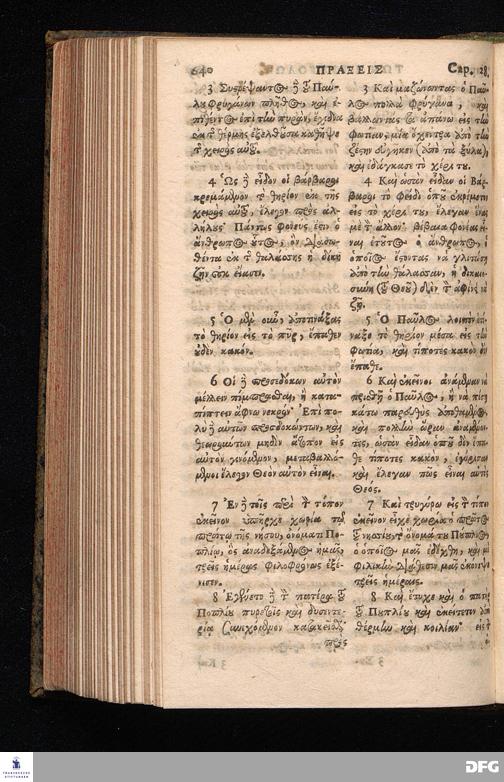 640 ΠΡΑΞΕΙΣ Cap. 28.
3 Συστρέψαντος δὲ τοῦ Παύ-
λου φρυγάνων πλῆθος, καὶ ἐ-
πιθέντος ἐπὶ τὴν πυρὰν, ἔχιδνα
ἐκ τῆς θέρμης ἐξελθοῦσα καθῆψε
τῆς χειρὸς αὐτοῦ.
4 Ὡς δὲ εἶδον οἱ βάρβαροι
κρεμάμενον τὸ θηρίον ἐκ τῆς
χειρὸς αὐτοῦ, ἔλεγον πρὸς ἀλ-
λήλους· Πάντως φονεύς ἐστιν ὁ
ἄνθρωπος οὗτος, ὃν διασω-
θέντα ἐκ τῆς θαλάσσης ἡ δίκη
ζῆν οὐκ εἴασεν.
5 Ὁ μὲν οὖν, ἀποτινάξας
τὸ θηρίον εἰς τὸ πῦρ, ἔπαθεν
οὐδὲν κακόν.
6 Οἱ δὲ προσεδόκων αὐτὸν
μέλλειν πίμπρασθαι, ἢ κατα-
πίπτειν ἄφνω νεκρόν· Ἐπὶ πο-
λὺ δὲ αὐτῶν προσδοκώντων, καὶ
θεωρούντων μηδὲν ἄτοπον εἰς
αὐτὸν γινόμενον, μεταβαλλό-
μενοι ἔλεγον Θεὸν αὐτὸν εἶναι.
7 Ἐν δὲ τοῖς περὶ τὸν τόπον
ἐκεῖνον ὑπῆρχε χωρία τῷ
πρώτῳ τῆς νήσου, ὀνόματι Πο-
πλίῳ, ὃς ἀναδεξάμενος ἡμᾶς,
τρεῖς ἡμέρας φιλοφρόνως ἐξέ-
νισεν.
8 Ἐγένετο δὲ τὸν πατέρα τοῦ
Ποπλίου πυρετοῖς καὶ δυσεντε-
ρίᾳ συνεχόμενον κατακεῖσθαι
πρὸς
3 Καὶ μαζώνοντας ὁ Παῦ
πολλὰ φρύγανα, καὶ
βάλλοντάς τα ἀπάνω εἰς τὴν
φωτίαν, μία ὄχεντρα ἀπὸ τὴν
ζέστην εὐγῆκεν (ἀπὸ τὰ ξύλα),
καὶ ἐδάγκασε τὸ χέρι του.
4 Καὶ ὡσὰν εἶδαν οἱ Βάρ-
βαροι τὸ φείδι ὁποῦ ἐκρέμετον
εἰς τὸ χέρι του, ἔλεγαν ἕνας
μὲ τὸν ἄλλον· βέβαια φονέας εἶ-
ναι ἐτοῦτος ὁ ἄνθρωπος, ὁ
ὁποῖος ἔστοντας νὰ γλιτώσῃ
ἀπὸ τὴν θάλασσαν, ἡ δικαιο-
σύνη (τοῦ Θεοῦ) δὲν τὸν ἀφίνει νὰ
ζῇ.
5 Ὁ Παῦλος λοιπὸν
τὸ θηρίον μέσα εἰς τὴν
φωτία, καὶ τίποτες κακὸν δὲν
ἔπαθε.
6 Καὶ ἐκεῖνοι ἀνάμεναν νὰ
πρισθῇ ὁ Παῦλος, ἢ νὰ πέσῃ
κάτω παρευθὺς ἀποθαμένος,
καὶ πολλὴν ὥραν
ὡσὰν εἶδαν ὁποῦ δὲν ἔπα-
θε τίποτες κακὸν, ἐγύρισαν
καὶ ἔλεγαν πῶς εἶναι αὐτὸς
Θεός.
7 Καὶ τριγύρω εἰς τὸν τόπον
ἐκεῖνον εἶχε χωρία ὁ πρῶτος
τοῦ νησιοῦ, τὸ ὄνομά του Πόπλιος,
ὁ ὁποῖος μᾶς ἐδέχθη, καὶ μὲ
φιλικὴν διάθεσιν μᾶς
τρεῖς ἡμέραις.
8 Καὶ ἔτυχε καὶ ὁ πατέρας
τοῦ Πουπλίου καὶ ἐκείτετον ἀπὸ
θέρμην καὶ κοιλίαν·
DFG